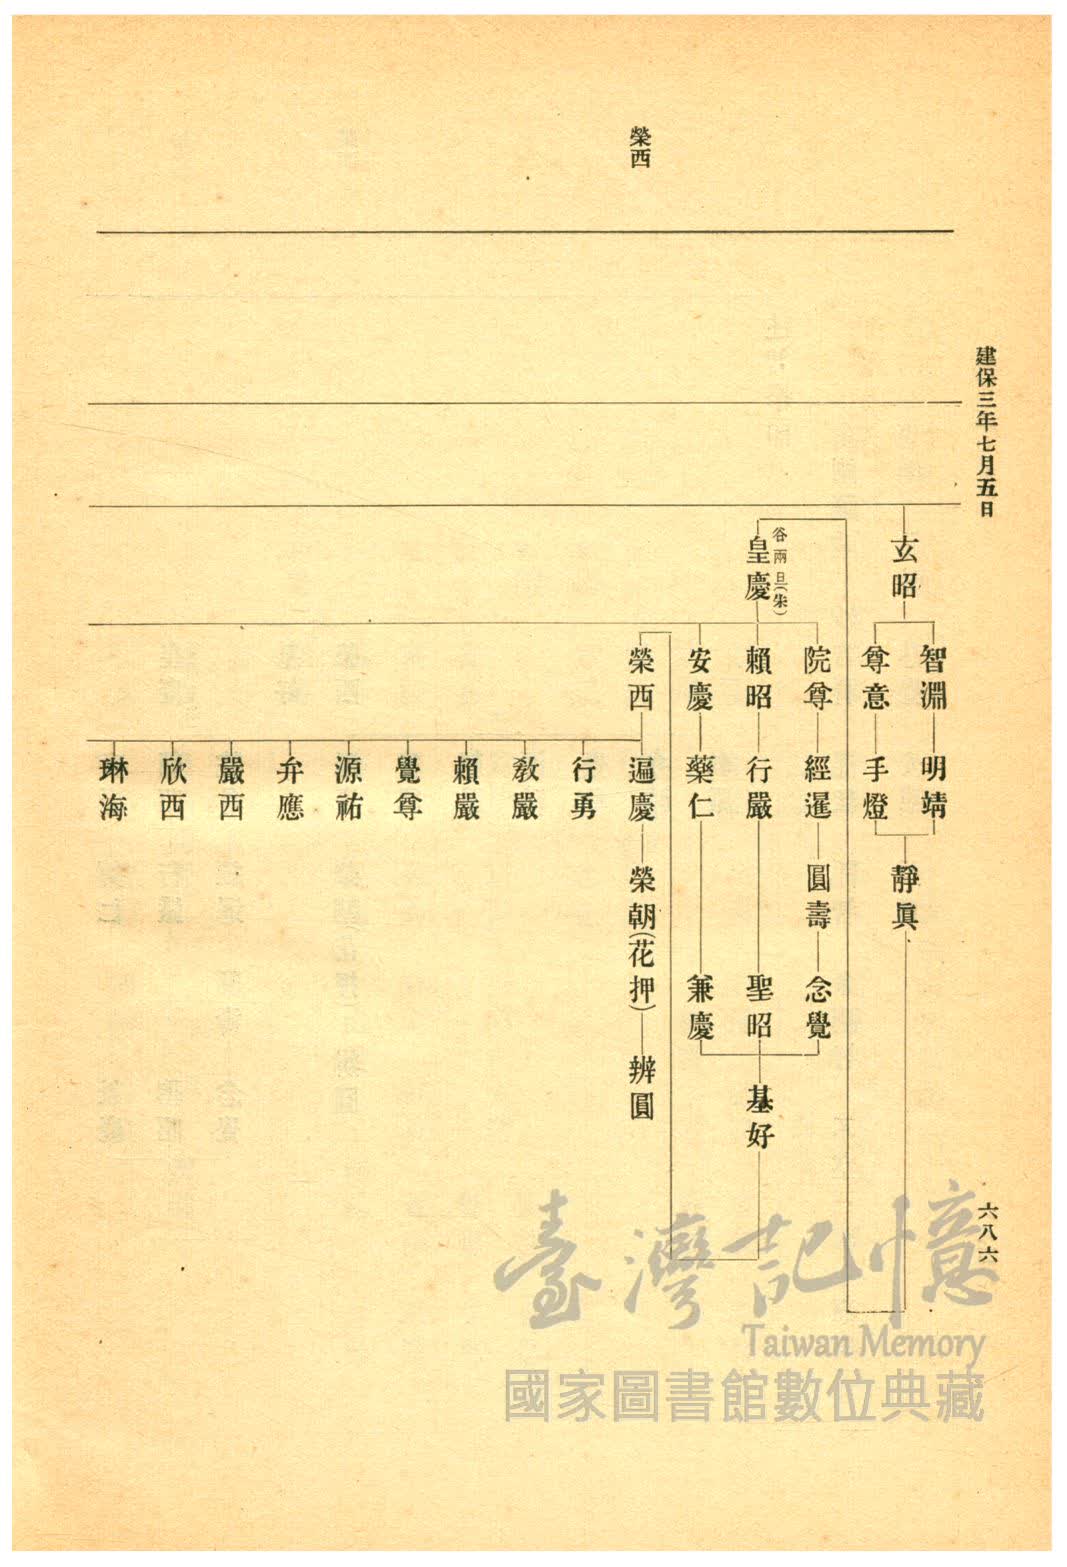 建保三年七月五日
六八六
榮西
玄昭
智淵
明靖
尊意
手燈
靜眞
皇慶
谷兩旦(朱)
院尊
經暹
圓壽
念覺
賴昭
行嚴
聖昭
安慶
藥仁
兼慶
基好
榮西
遍慶
榮朝(花押)
辨圓
行勇
敎嚴
賴嚴
覺尊
源祐
弁應
嚴西
欣西
琳海
臺灣記憶
Taiwan Memory
國家圖書館數位典藏